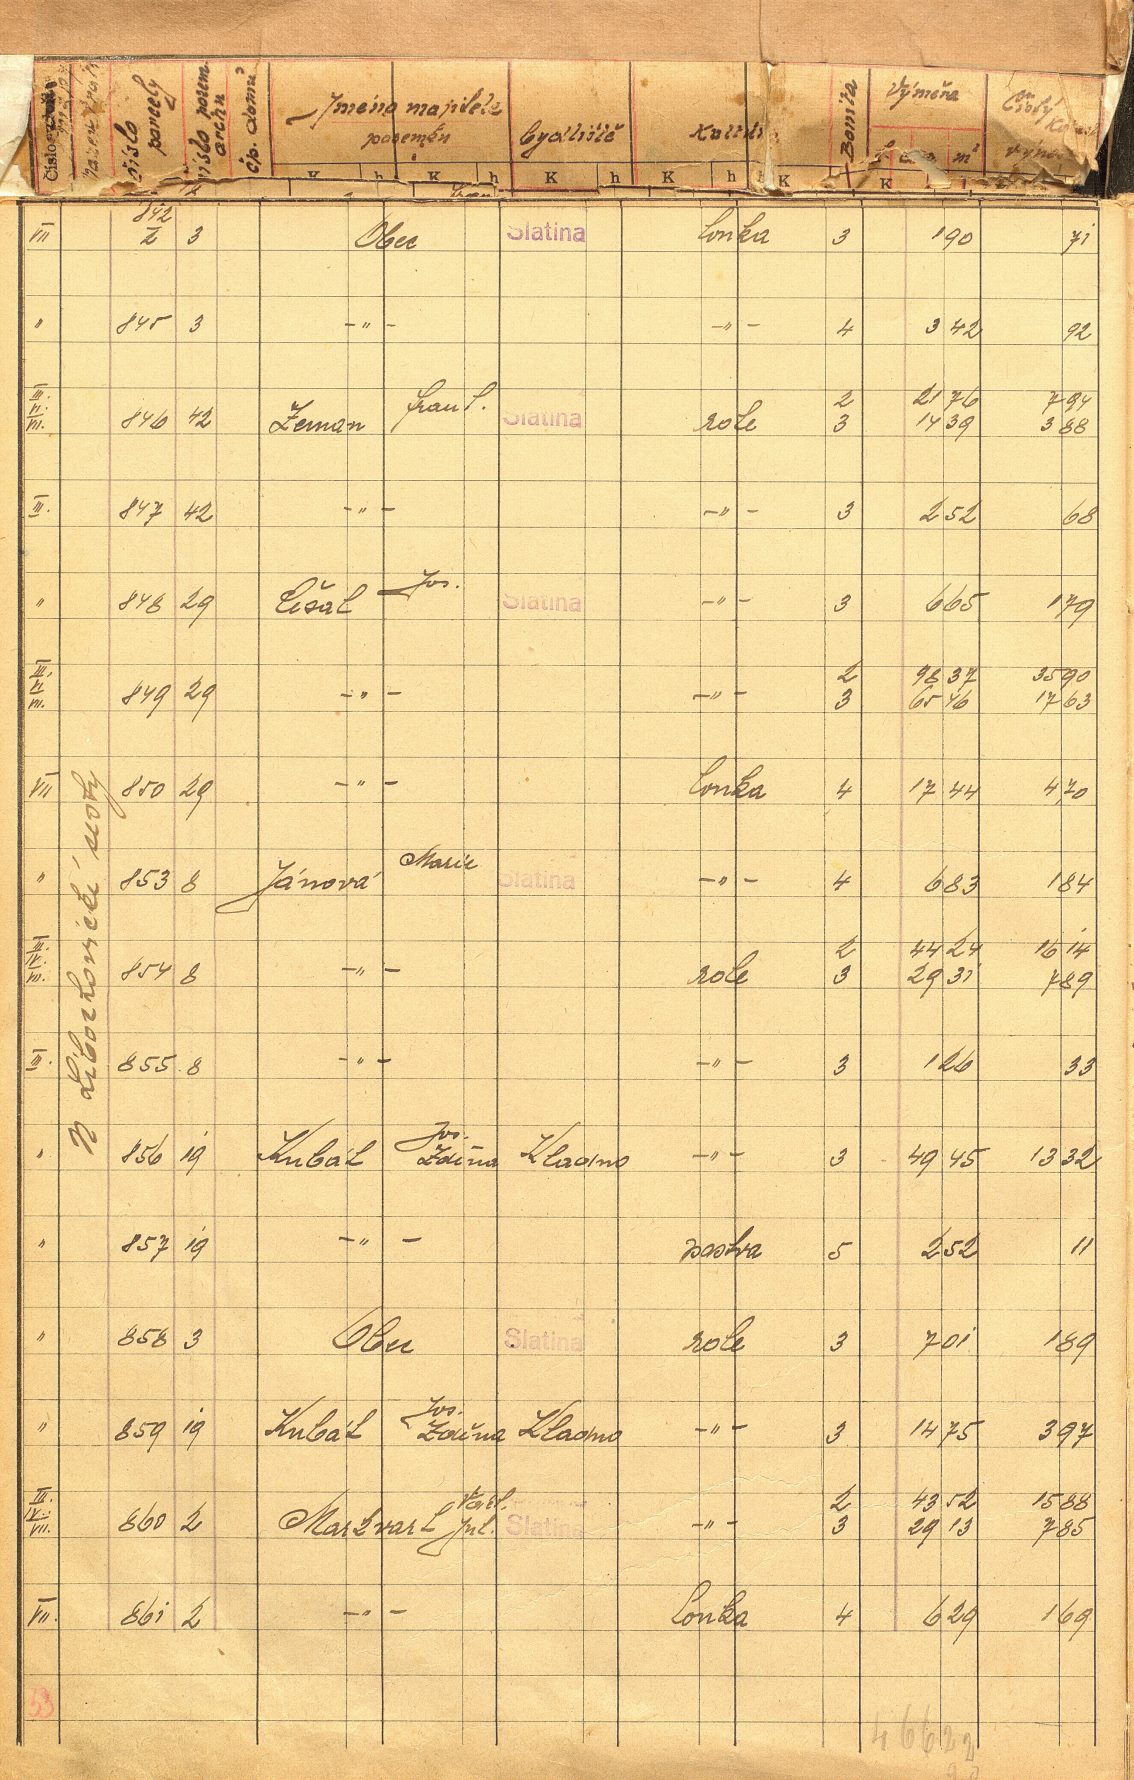 Číslo
číslo parcely
číslo pozem. archu
čp. domu
Jméno majitele pozemku
bydliště
Bonita
Výměra
m²
Čistý
K h K h K h K h K K
VII 842/2 3 Obec Slatina louka 3 190 71
" 845 3 -"- -"- 4 342 92
III. VI. VII. 846 42 Zeman Frant. Slatina role 2 2176 794
3 1439 388
III. 847 42 -"- -"- 3 252 68
" 848 29 Číšal Jos. Slatina -"- 3 665 179
III. VI VII. 849 29 -"- -"- 2 9837 3590
3 6546 1763
VII 850 29 -"- louka 4 1744 470
" 853 8 Jánová Marie Slatina -"- 4 683 184
III. IV. VII. 854 8 -"- role 2 4424 1614
3 2931 789
III. 855 8 -"- -"- 3 126 33
" 856 19 Kubát Jos. Zdeňa Kladno -"- 3 4945 1332
" 857 19 -"- pastva 5 252 11
" 858 3 Obec Slatina role 3 701 189
" 859 19 Kubát Jos. Zdeňa Kladno -"- 3 1475 397
III. IV. VII. 860 2 Markvart Jul. Slatina -"- 2 4352 1588
3 2913 785
VII. 861 2 -"- louka 4 629 169
53